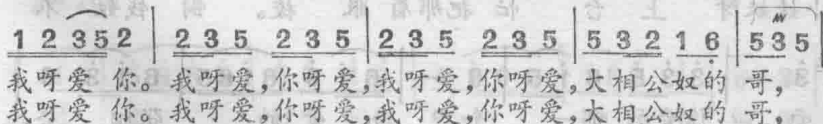 1 2 3 5 2 | 2 3 5 2 3 5 | 2 3 5 2 3 5 | 5 3 2 1 6 | 5 3 5
我呀爱 你。我呀爱,你呀爱,我呀爱,你呀爱,大相公奴的 哥,
我呀爱 你。我呀爱,你呀爱,我呀爱,你呀爱,大相公奴的 哥,